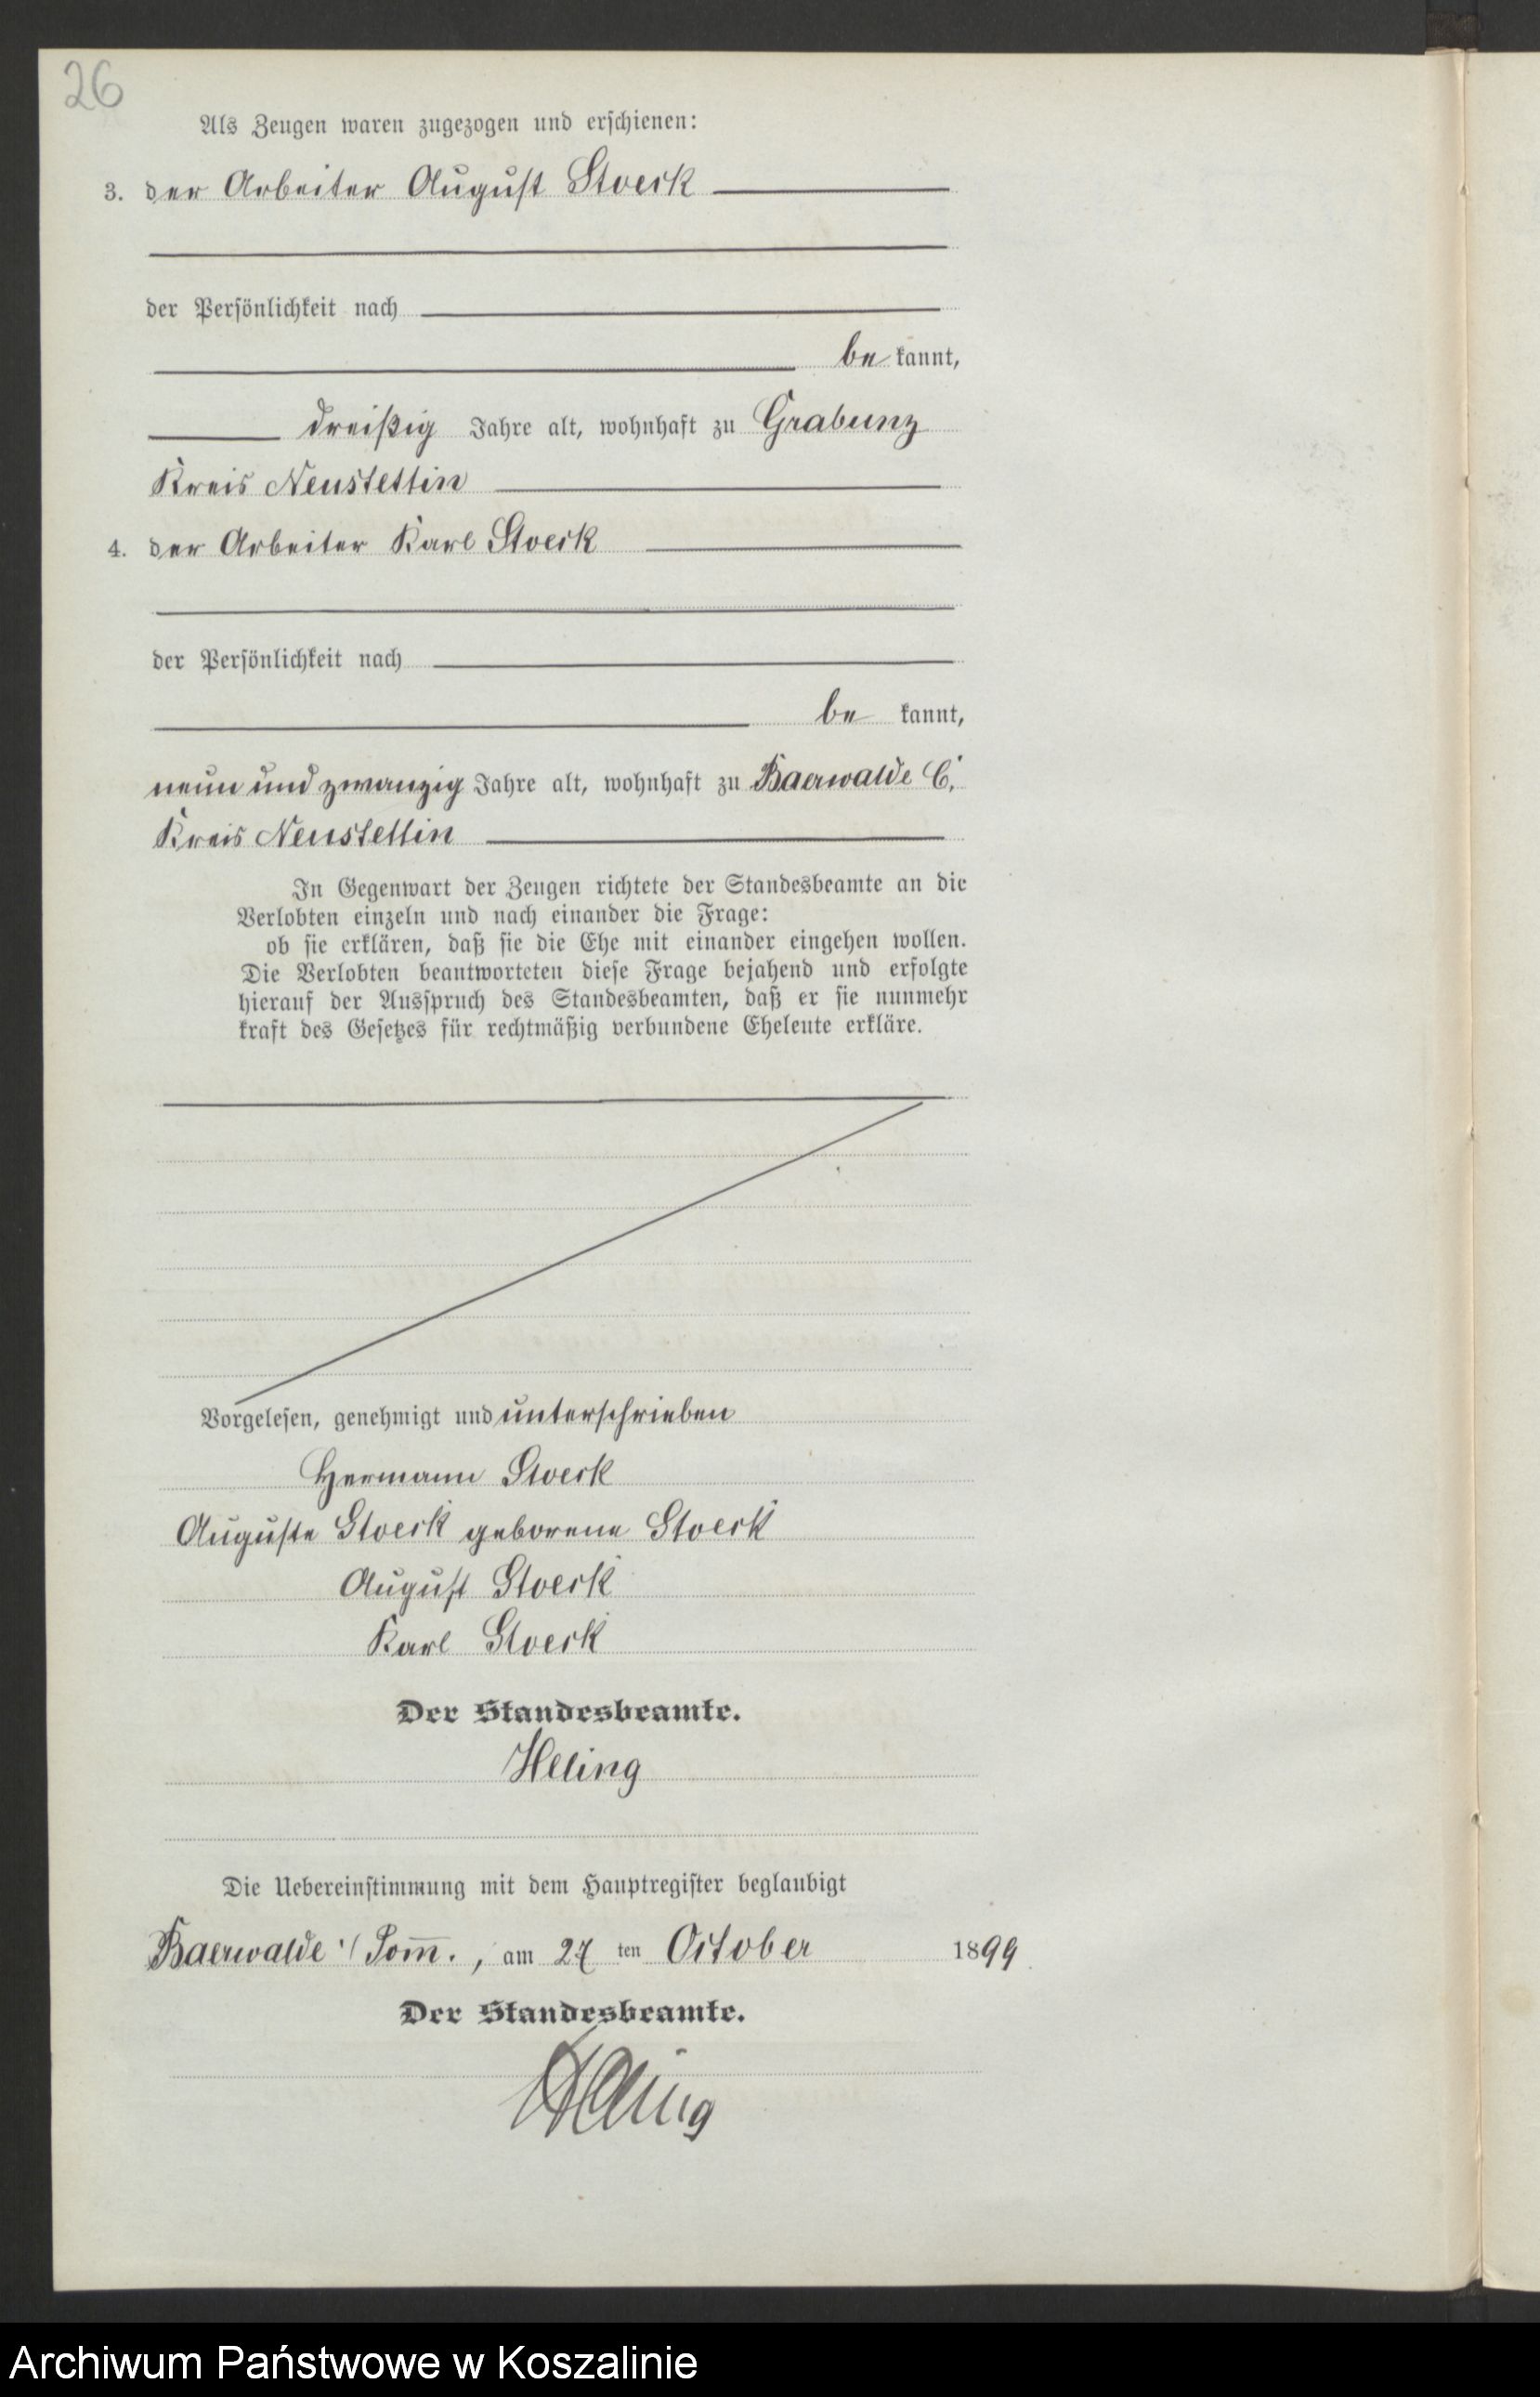 26
Als Zeugen waren zugezogen und erschienen:
3. der Arbeiter August Stoeck
der Persönlichkeit nach
be kannt,
dreißig Jahre alt, wohnhaft zu Grabunz
Kreis Neustettin
4. der Arbeiter Karl Stoeck
der Persönlichkeit nach
be kannt,
neun und zwanzig Jahre alt, wohnhaft zu Baerwalde C,
Kreis Neustettin
In Gegenwart der Zeugen richtete der Standesbeamte an die
Verlobten einzeln und nach einander die Frage:
ob sie erklären, daß sie die Ehe mit einander eingehen wollen.
Die Verlobten beantworteten diese Frage bejahend und erfolgte
hierauf der Ausspruch des Standesbeamten, daß er sie nunmehr
kraft des Gesetzes für rechtmäßig verbundene Eheleute erkläre.
Vorgelesen, genehmigt und unterschrieben
Hermann Stoeck
Auguste Stoeck geborene Stoeck
August Stoeck
Karl Stoeck
Der Standesbeamte.
Heling
Die Uebereinstimmung mit dem Hauptregister beglaubigt
Baerwalde i/Pom̅., am 27 ten October 1899
Der Standesbeamte.
Heling
Archiwum Państwowe w Koszalinie